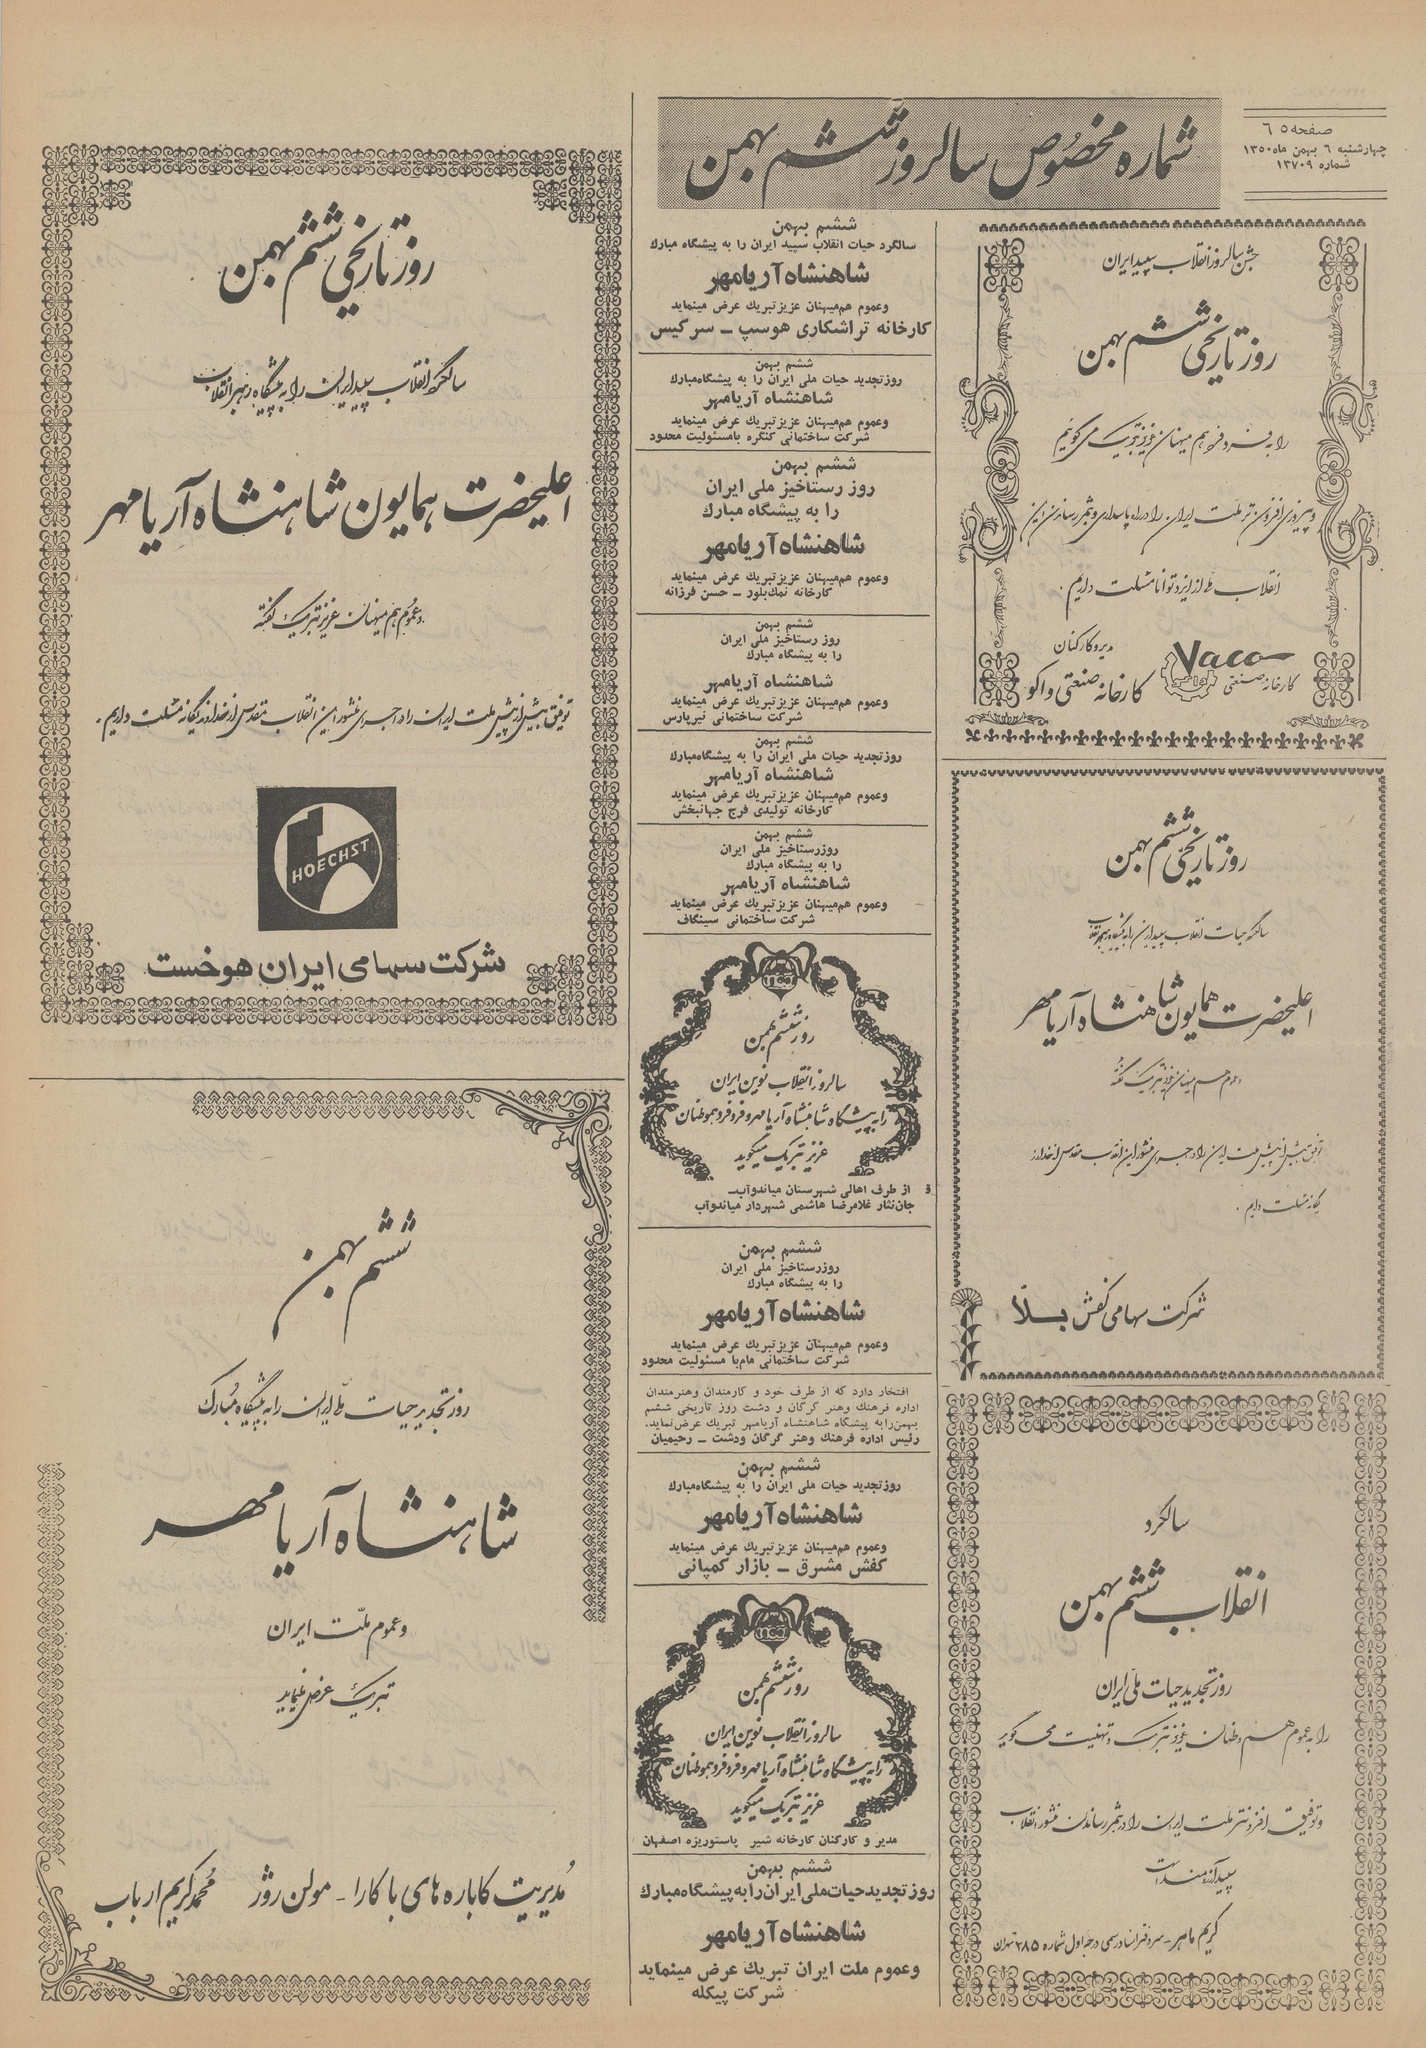 صفحه ٦٥
چهارشنبه ٦ بهمن ماه ١٣٥٠
شماره ١٣٧٠٩
شماره مخصوص سالروز ششم بهمن
جشن سالروز انقلاب سپید ایران
روز تاریخی ششم بهمن
را به فرد فرد هم میهنان عزیز تبریک می گوئیم
و پیروزی افزون تر ملت ایران را در راه پاسداری و بثمر رساندن این
انقلاب از ایزد توانا مسئلت داریم .
مدیر و کارکنان
کارخانه صنعتی واکو
Vaco
کارخانه صنعتی
روز تاریخی ششم بهمن
سالگرد حیات انقلاب سپید ایران را به پیشگاه رهبر انقلاب
اعلیحضرت همایون شاهنشاه آریامهر
و عموم هم میهنان عزیز تبریک گفته
توفیق بیش از پیش ملت ایران را در اجرای منشور این انقلاب مقدس از خداوند
یگانه مسئلت داریم .
شرکت سهامی کفش بلا
سالگرد
انقلاب ششم بهمن
روز تجدید حیات ملی ایران
را به عموم هم وطنان عزیز تبریک و تهنیت می گوید
و توفیق افزونتر ملت ایران را در بثمر رساندن منشور انقلاب
سپید آرزومند است
کریم ماهر - سردفتر اسناد رسمی درجه اول شماره ٢٨٥ تهران
ششم بهمن
سالگرد حیات انقلاب سپید ایران را به پیشگاه مبارك
شاهنشاه آریامهر
وعموم هم‌میهنان عزیز تبریك عرض مینماید
کارخانه تراشکاری هوسپ ــ سرکیس
ششم بهمن
روزتجدید حیات ملی ایران را به پیشگاه‌مبارك
شاهنشاه آریامهر
وعموم هم‌میهنان عزیزتبریك عرض مینماید
شرکت ساختمانی کنگره بامسئولیت محدود
ششم بهمن
روز رستاخیز ملی ایران
را به پیشگاه مبارك
شاهنشاه آریامهر
وعموم هم‌میهنان عزیزتبریك عرض مینماید
کارخانه نمك‌بلور ــ حسن فرزانه
ششم بهمن
روز رستاخیز ملی ایران
را به پیشگاه مبارك
شاهنشاه آریامهر
وعموم هم‌میهنان عزیزتبریك عرض مینماید
شرکت ساختمانی نیرپارس
ششم بهمن
روزتجدید حیات ملی ایران را به پیشگاه‌مبارك
شاهنشاه آریامهر
وعموم هم‌میهنان عزیزتبریك عرض مینماید
کارخانه تولیدی فرج جهانبخش
ششم بهمن
روزرستاخیز ملی ایران
را به پیشگاه مبارك
شاهنشاه آریامهر
وعموم هم‌میهنان عزیزتبریك عرض مینماید
شرکت ساختمانی سینگاف
روز ششم بهمن
سالروز انقلاب نوین ایران
را به پیشگاه شاهنشاه آریامهر و فرد فرد هموطنان
عزیز تبریک میگوید
از طرف اهالی شهرستان میاندوآب‌ــ
جان‌نثار غلامرضا هاشمی شهردار میاندوآب
ششم بهمن
روزرستاخیز ملی ایران
را به پیشگاه مبارك
شاهنشاه آریامهر
وعموم هم‌میهنان عزیزتبریك عرض مینماید
شرکت ساختمانی مام‌با مسئولیت محدود
افتخار دارد که از طرف خود و کارمندان وهنرمندان
اداره فرهنك وهنر گرگان و دشت روز تاریخی ششم
بهمن‌رابه پیشگاه شاهنشاه آریامهر تبریك عرض‌نماید.
رئیس اداره فرهنك وهنر گرگان ودشت ــ رحیمیان
ششم بهمن
روزتجدید حیات ملی ایران را به پیشگاه‌مبارك
شاهنشاه آریامهر
وعموم هم‌میهنان عزیزتبریك عرض مینماید
کفش مشرق ــ بازار کمپانی
روز ششم بهمن
سالروز انقلاب نوین ایران
را به پیشگاه شاهنشاه آریامهر و فرد فرد هموطنان
عزیز تبریک میگوید
مدیر و کارکنان کارخانه شیر پاستوریزه اصفهان
ششم بهمن
روزتجدیدحیات‌ملی‌ایران‌رابه‌پیشگاه‌مبارك
شاهنشاه آریامهر
وعموم ملت ایران تبریك عرض مینماید
شرکت پیکله
روز تاریخی ششم بهمن
سالگرد انقلاب سپید ایران را به پیشگاه رهبر انقلاب
اعلیحضرت همایون شاهنشاه آریامهر
و عموم هم میهنان عزیز تبریک گفته
توفیق بیش از پیش ملت ایران را در اجرای منشور این انقلاب مقدس از خداوند یگانه مسئلت داریم .
HOECHST
شرکت سهامی ایران هوخست
ششم بهمن
روز تجدید حیات ملی ایران را به پیشگاه مبارک
شاهنشاه آریامهر
و عموم ملت ایران
تبریک عرض مینماید
مدیریت کاباره های باکارا - مولن روژ محمد کریم ارباب